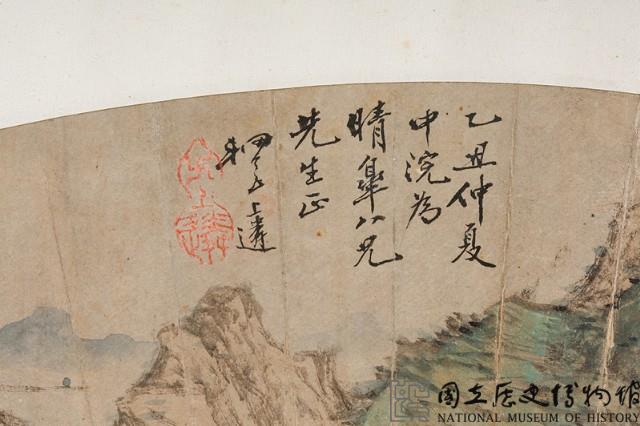 乙丑仲夏
中浣為
晴皋八兄
先生正
上遴
國立歷史博物館
NATIONAL MUSEUM OF HISTORY